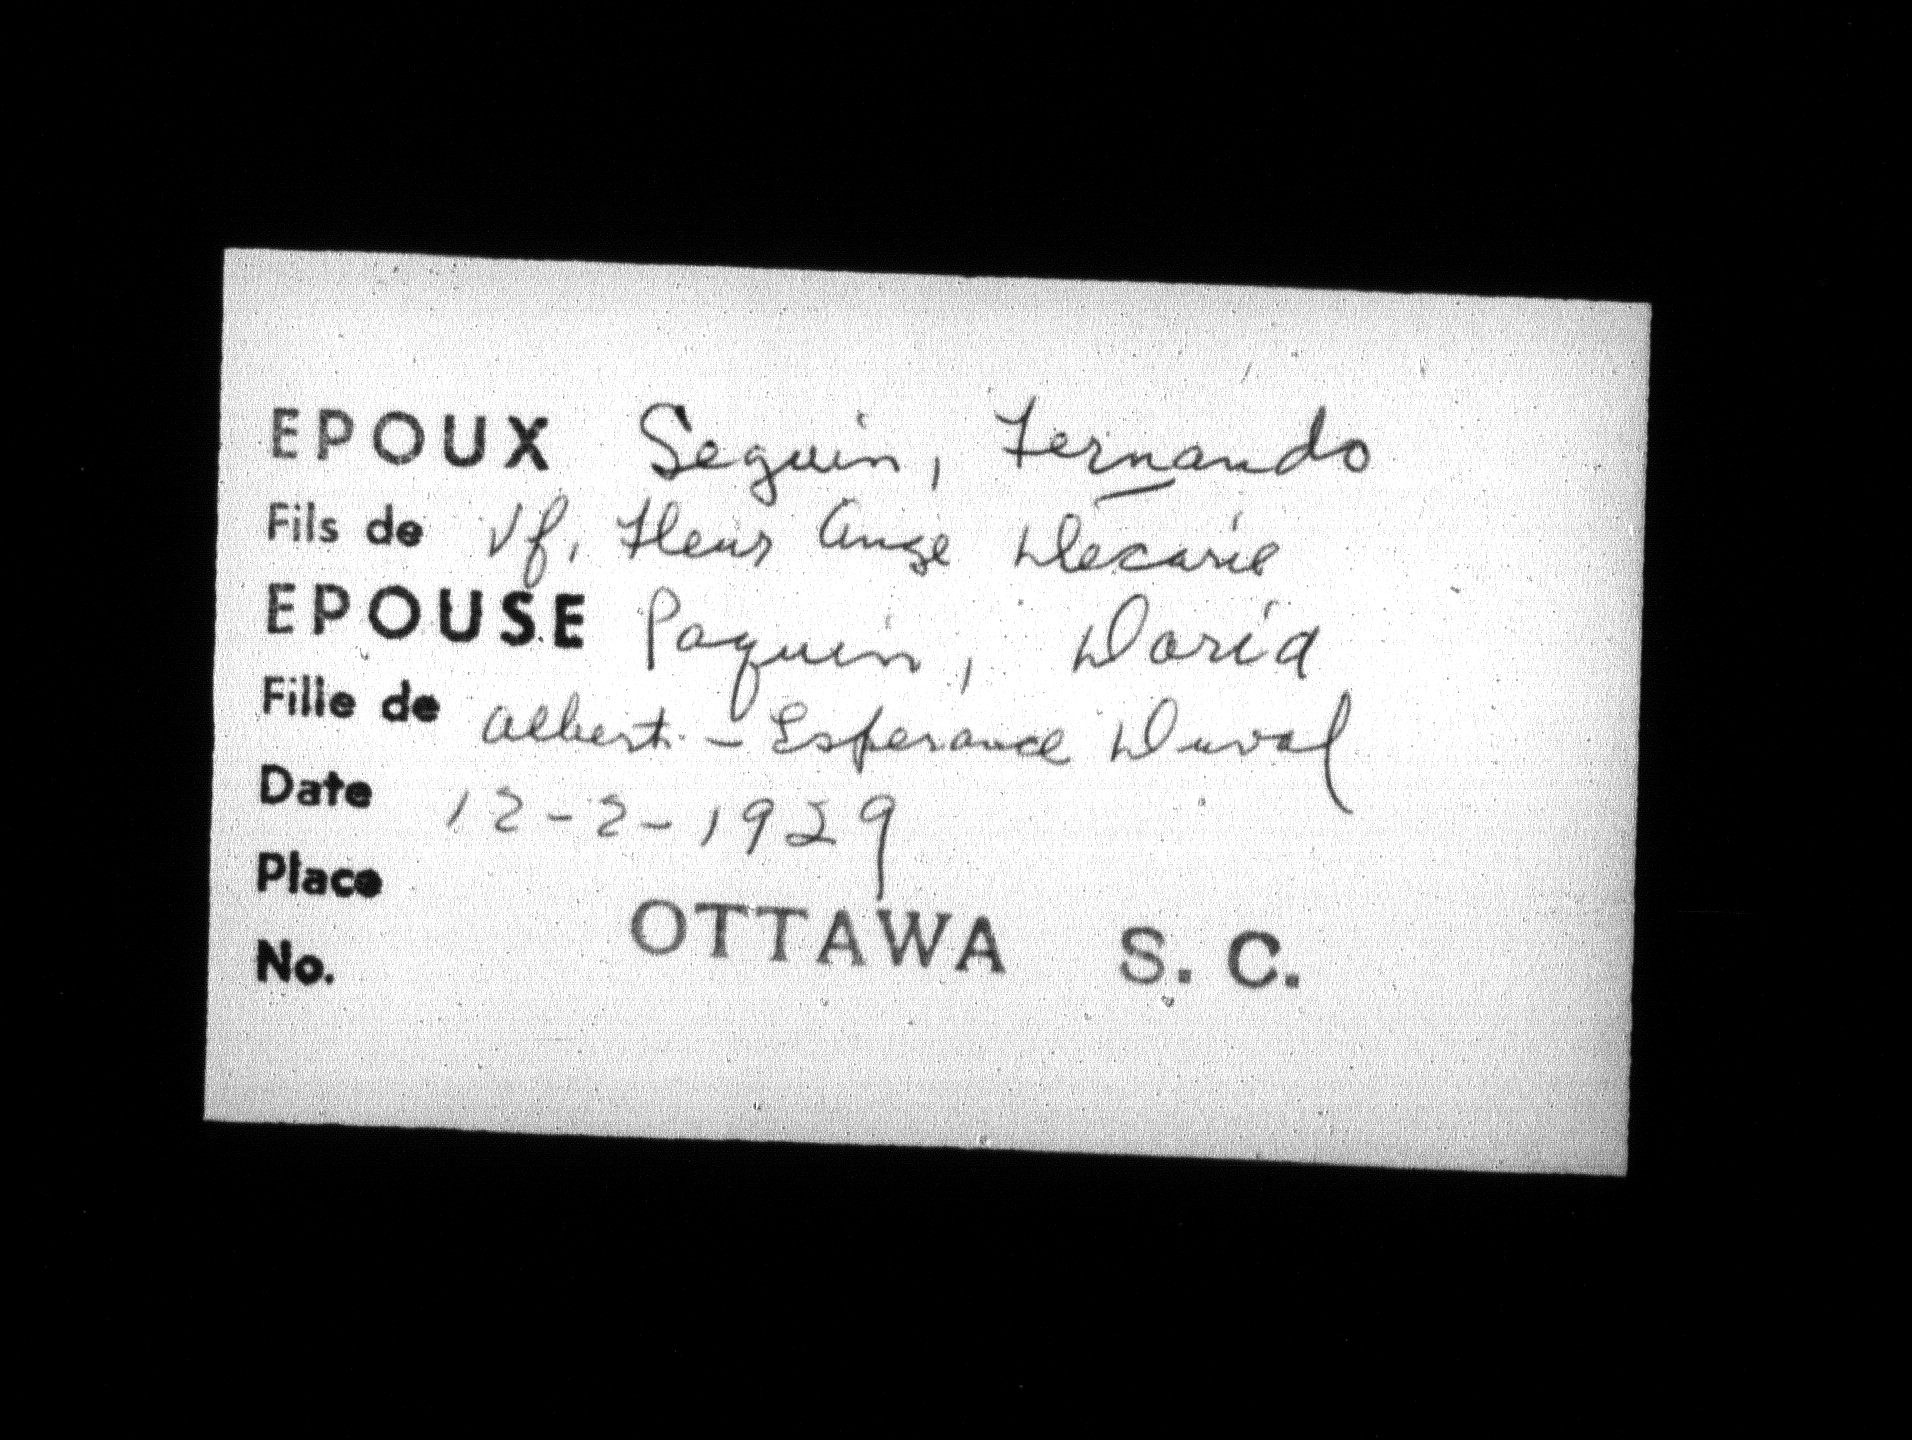 EPOUX Seguin, Fernando
Fils de Vf, Fleur Ange Decarie
EPOUSE Paquin, Doria
Fille de Albert - Esperance Duval
Date 12-2-1929
Place
OTTAWA S. C.
No.